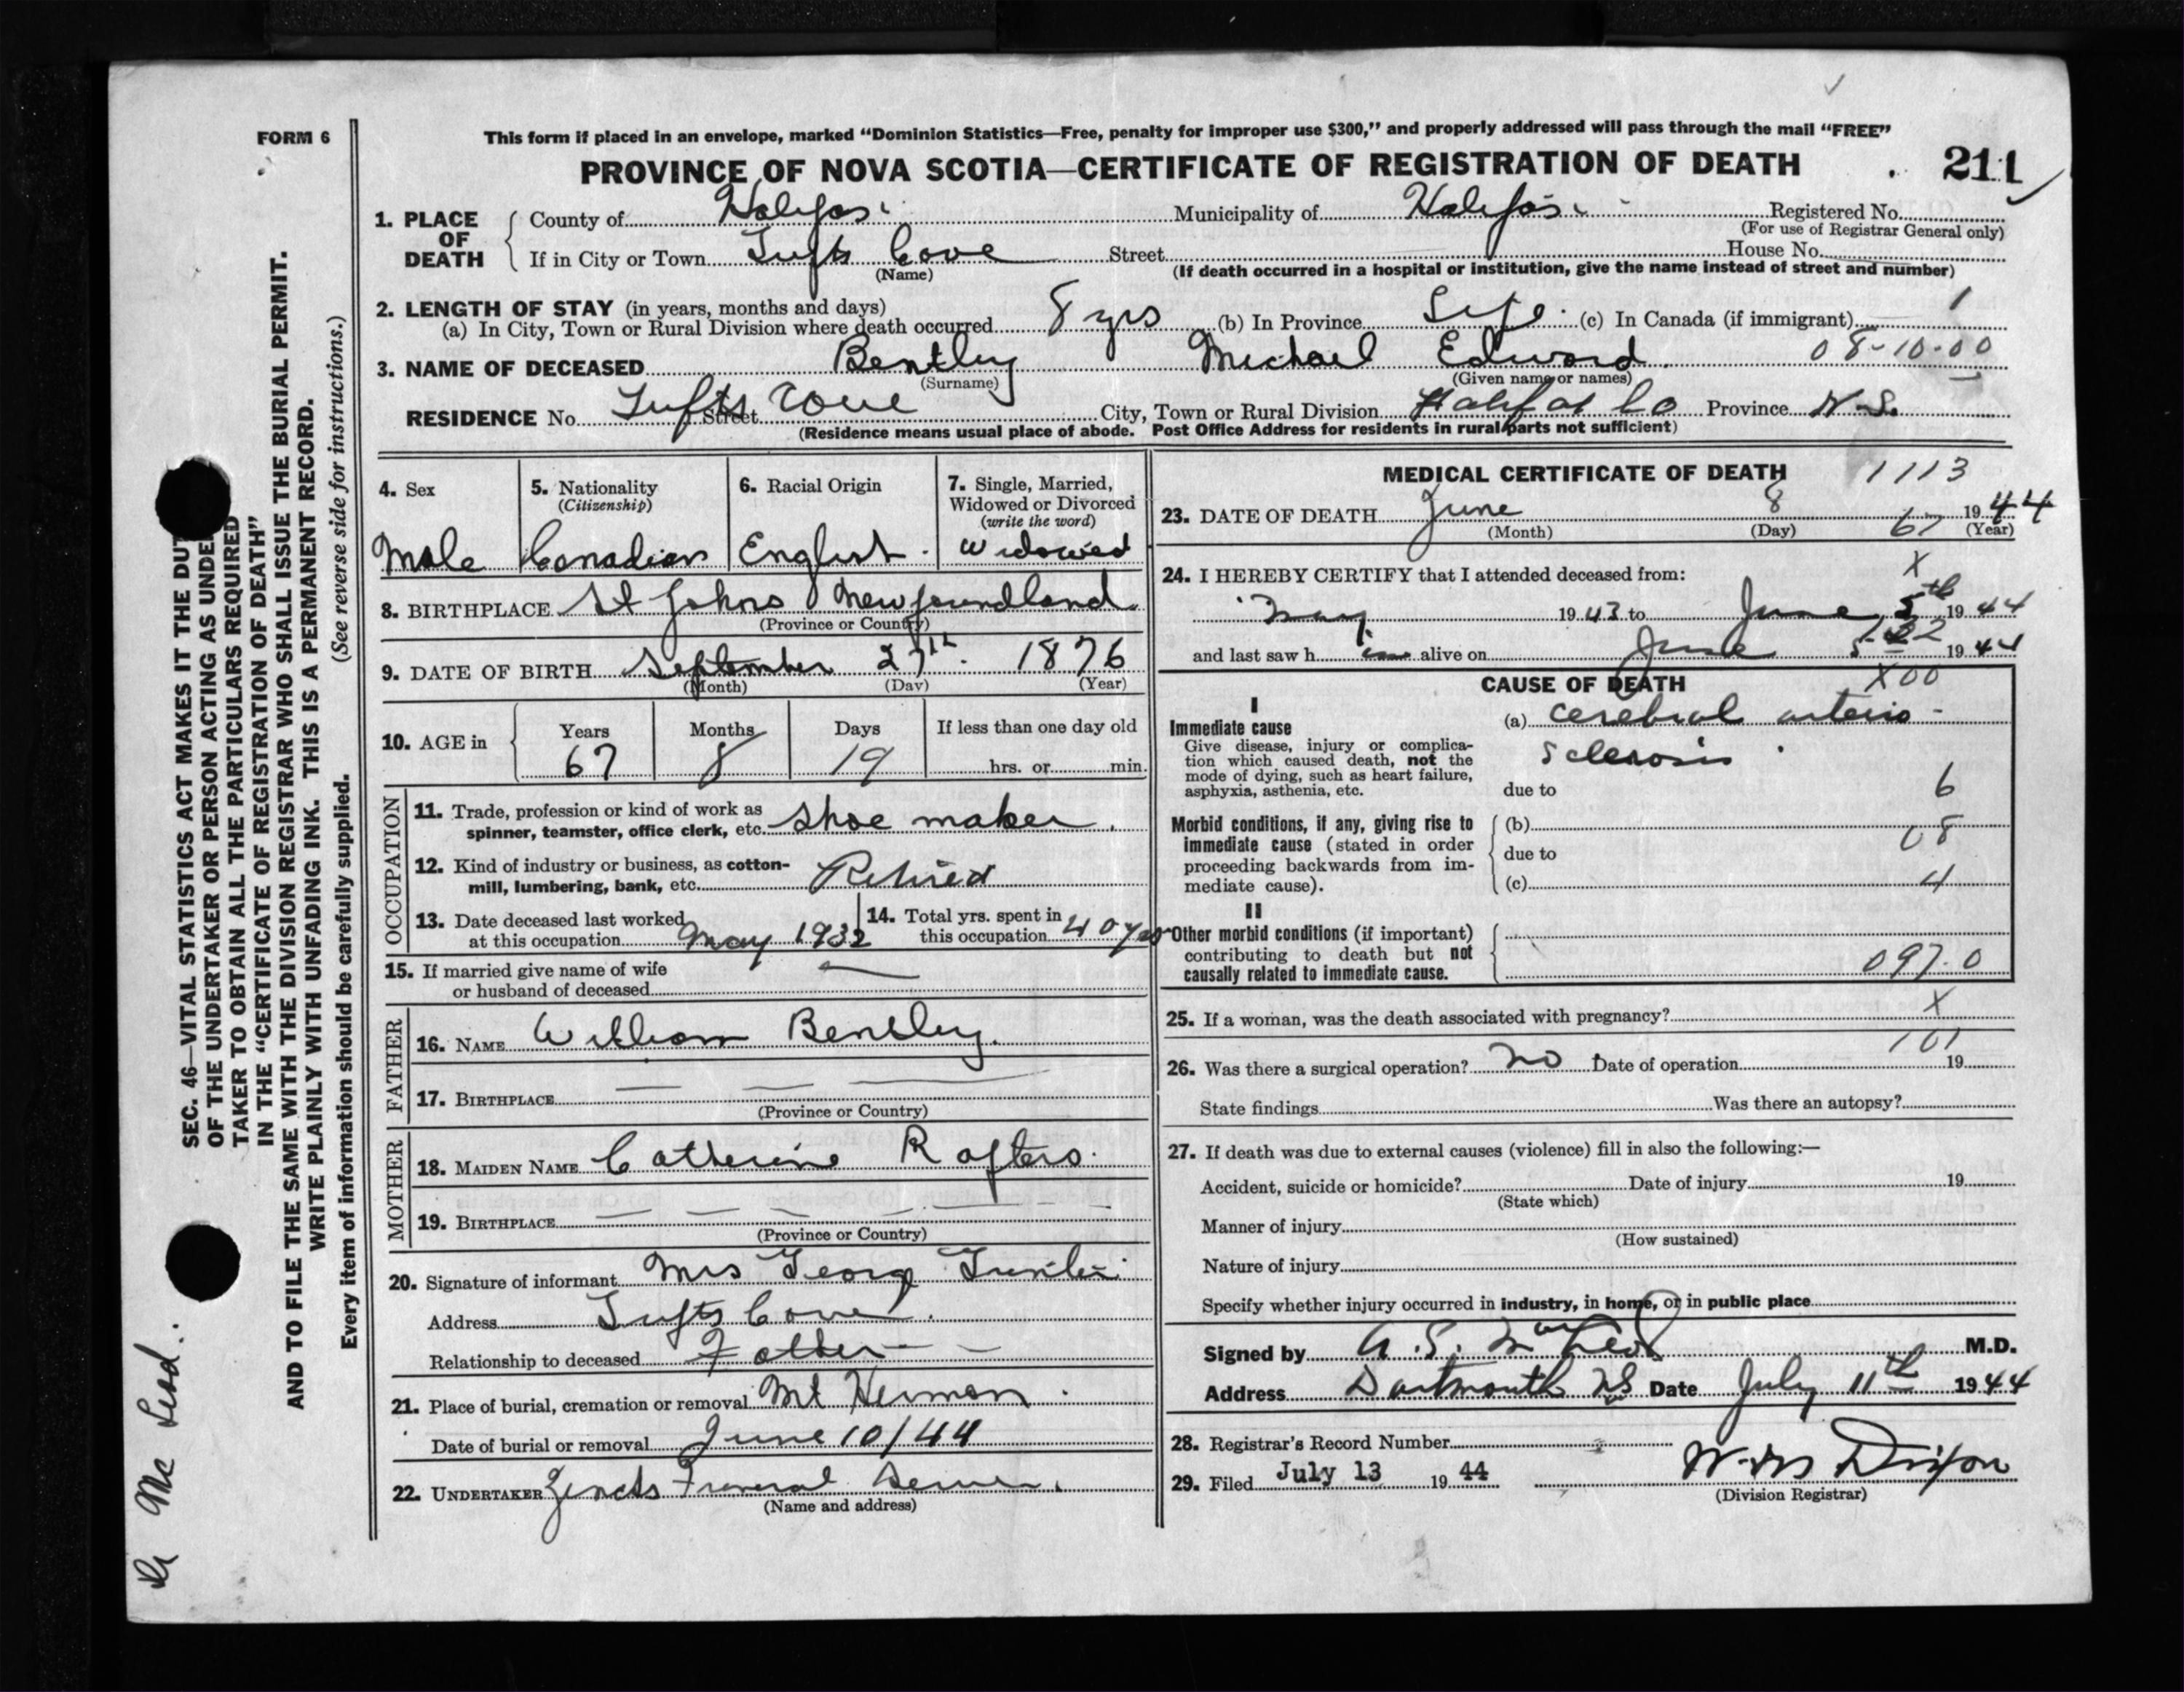 FORM 6
This form if placed in an envelope, marked “Dominion Statistics—Free, penalty for improper use $300,” and properly addressed will pass through the mail “FREE”
PROVINCE OF NOVA SCOTIA—CERTIFICATE OF REGISTRATION OF DEATH
211
1. PLACE OF DEATH
County of Halifax Municipality of Halifax Registered No.
(For use of Registrar General only)
If in City or Town Tufts Cove Street House No.
(Name) (If death occurred in a hospital or institution, give the name instead of street and number)
2. LENGTH OF STAY (in years, months and days)
(a) In City, Town or Rural Division where death occurred 8 yrs (b) In Province Life (c) In Canada (if immigrant) 1
3. NAME OF DECEASED Bentley Michael Edward 08-10-00
(Surname) (Given name or names)
RESIDENCE No. Tufts Cove Street City, Town or Rural Division Halifax Co Province N.S.
(Residence means usual place of abode. Post Office Address for residents in rural parts not sufficient)
4. Sex
Male
5. Nationality
(Citizenship)
Canadian
6. Racial Origin
English
7. Single, Married,
Widowed or Divorced
(write the word)
Widowed
8. BIRTHPLACE St Johns Newfoundland
(Province or Country)
9. DATE OF BIRTH September 27th 1876
(Month) (Day) (Year)
10. AGE in
Years Months Days If less than one day old
67 8 19 hrs. or min.
OCCUPATION
11. Trade, profession or kind of work as
spinner, teamster, office clerk, etc. Shoe maker
12. Kind of industry or business, as cotton-
mill, lumbering, bank, etc. Retired
13. Date deceased last worked
at this occupation May 1932
14. Total yrs. spent in
this occupation 40 yrs
15. If married give name of wife
or husband of deceased —
FATHER
16. NAME William Bentley.
17. BIRTHPLACE — — —
(Province or Country)
MOTHER
18. MAIDEN NAME Catherine Rafters
19. BIRTHPLACE — — — — — — —
(Province or Country)
20. Signature of informant Mrs Georg
Address Tufts Cove
Relationship to deceased Father — —
21. Place of burial, cremation or removal Mt Hermon
Date of burial or removal June 10/44
22. UNDERTAKER Zincks Funeral
(Name and address)
MEDICAL CERTIFICATE OF DEATH 1113
23. DATE OF DEATH June 8 1944
(Month) (Day) 67 (Year)
24. I HEREBY CERTIFY that I attended deceased from: X
May 1943 to June 5th 1944
and last saw him alive on June 5 1944
CAUSE OF DEATH X00
I
Immediate cause
Give disease, injury or complica-
tion which caused death, not the
mode of dying, such as heart failure,
asphyxia, asthenia, etc.
(a) cerebral arterio-
sclerosis
due to 6
Morbid conditions, if any, giving rise to
immediate cause (stated in order
proceeding backwards from im-
mediate cause).
(b) 08
due to
(c) 4
II
Other morbid conditions (if important)
contributing to death but not
causally related to immediate cause.
097.0
25. If a woman, was the death associated with pregnancy? X
101
26. Was there a surgical operation? no Date of operation 19
State findings Was there an autopsy?
27. If death was due to external causes (violence) fill in also the following:—
Accident, suicide or homicide? Date of injury 19
(State which)
Manner of injury
(How sustained)
Nature of injury
Specify whether injury occurred in industry, in home, or in public place
Signed by A. S. MacLeod M.D.
Address Dartmouth NS Date July 11th 1944
28. Registrar's Record Number
29. Filed July 13 1944 Dixon
(Division Registrar)
SEC. 46—VITAL STATISTICS ACT MAKES IT THE DUT
OF THE UNDERTAKER OR PERSON ACTING AS UNDE
TAKER TO OBTAIN ALL THE PARTICULARS REQUIRED
IN THE “CERTIFICATE OF REGISTRATION OF DEATH”
AND TO FILE THE SAME WITH THE DIVISION REGISTRAR WHO SHALL ISSUE THE BURIAL PERMIT.
WRITE PLAINLY WITH UNFADING INK. THIS IS A PERMANENT RECORD.
(See reverse side for instructions.)
Every item of information should be carefully supplied.
Dr Mc Leod.